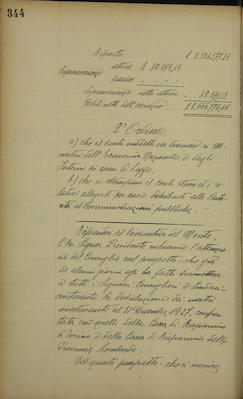 344
Riporto L.
attive L. 82.199,19
Sopravvenienze
passive . . . .
Sopravvenienze nette attive . 82.199,19
Utili netti dell'esercizio
2° Ordina
a) che il conto suddetto sia trasmesso ai Mi-
nisteri dell'Economia Nazionale e degli
Interni ai sensi di Legge,
b) che si stampino il conto stesso ed i re-
lativi allegati per modo distribuirli alle Auto-
rità ed Amministrazioni pubbliche.
Riferendosi al Consuntivo del Monte,
l'Ill. Signor Presidente richiama l'attenzio-
ne del Consiglio sul prospetto che già
da alcuni giorni egli ha fatto trasmettere
a tutti i Signori Consiglieri e Sindaci
contenente la distribuzione dei nostri
investimenti al 31 Dicembre 1927, confron-
tata con quelli della Cassa di Risparmio
di Torino e della Cassa di Risparmio delle
Provincie Lombarde.
Da questo prospetto - che si